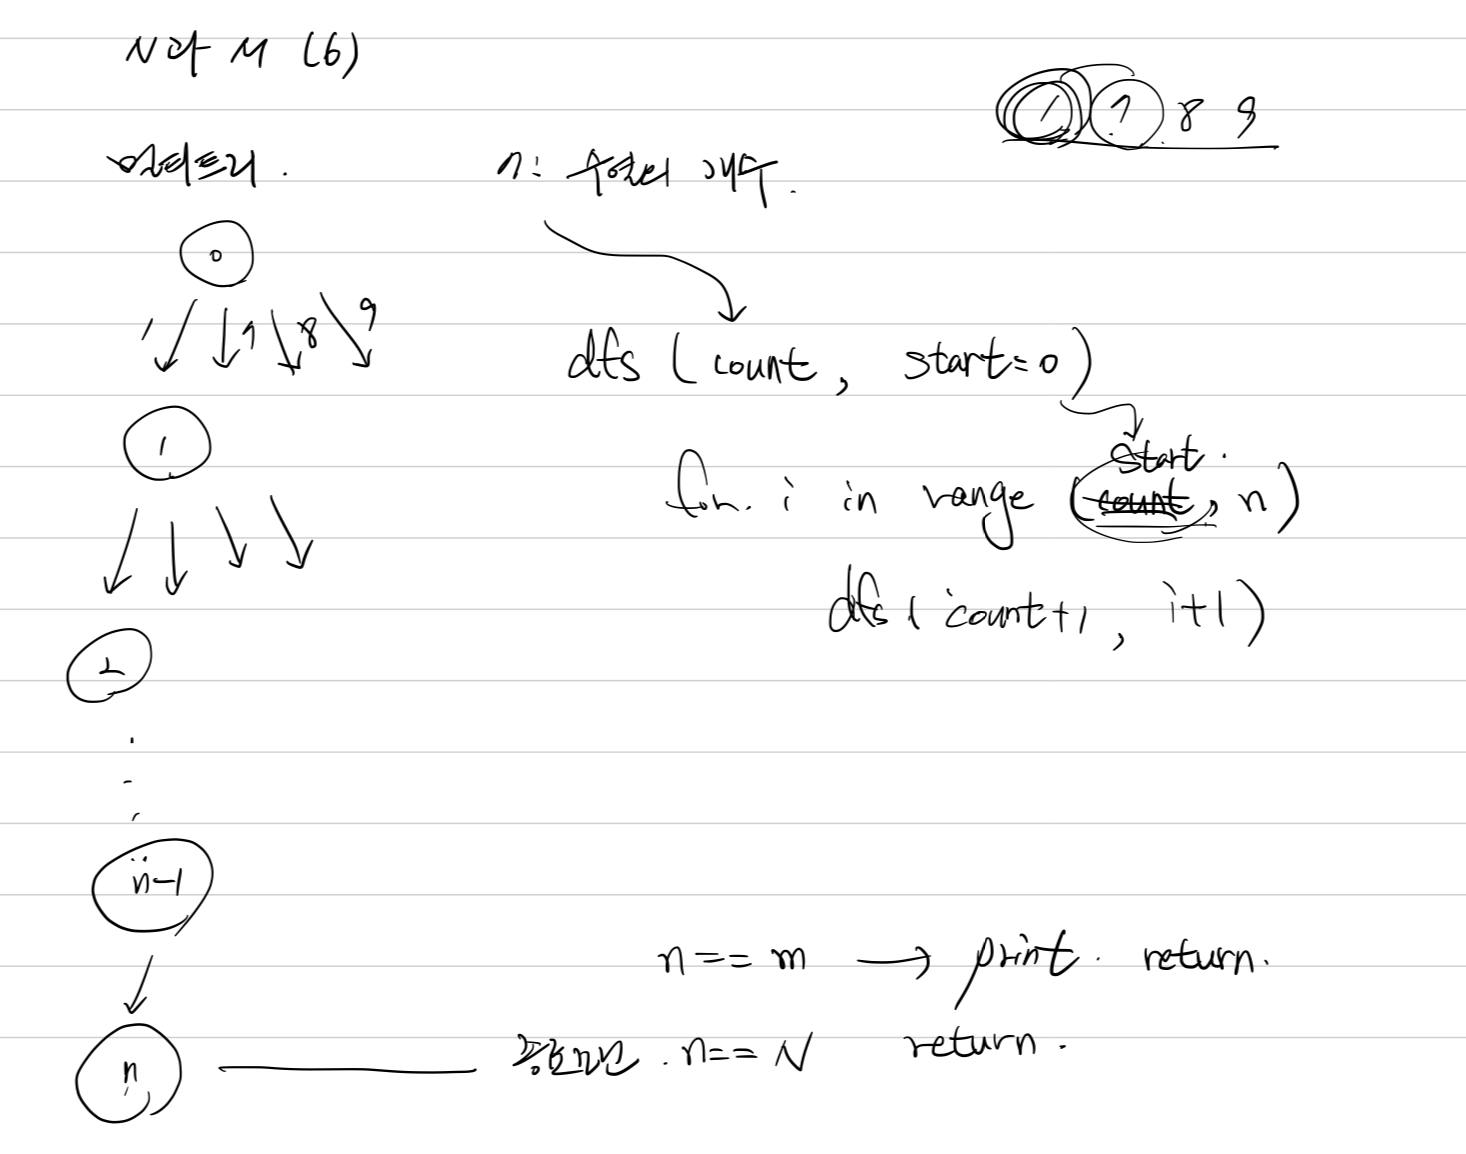 N과 M (6)
1 7 8 9
상태트리.
n: 수열의 개수.
0
1 7 8 9
dfs (count, start=0)
1
start.
for i in range (count, n)
dfs (count+1, i+1)
2
n-1
n == m → print. return.
n
종료조건. n == N return.